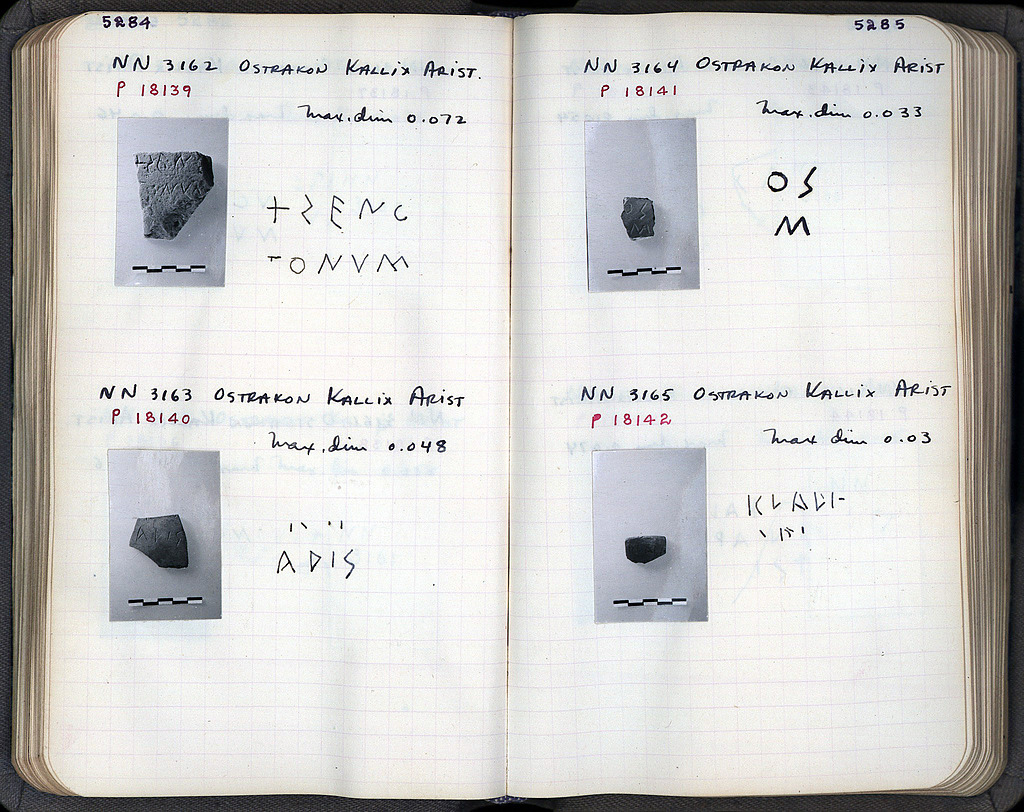 5284
NN 3162 OSTRAKON KALLIX ARIST.
P 18139
Max. dim 0.072
+ΣΕΝ
ΟΝΥΜ
NN 3163 OSTRAKON KALLIX ARIST
P 18140
Max. dim 0.048
ΑΡΙΣ
5285
NN 3164 OSTRAKON KALLIX ARIST
P 18141
Max. dim 0.033
ΟΣ
Μ
NN 3165 OSTRAKON KALLIX ARIST
P 18142
Max dim 0.03